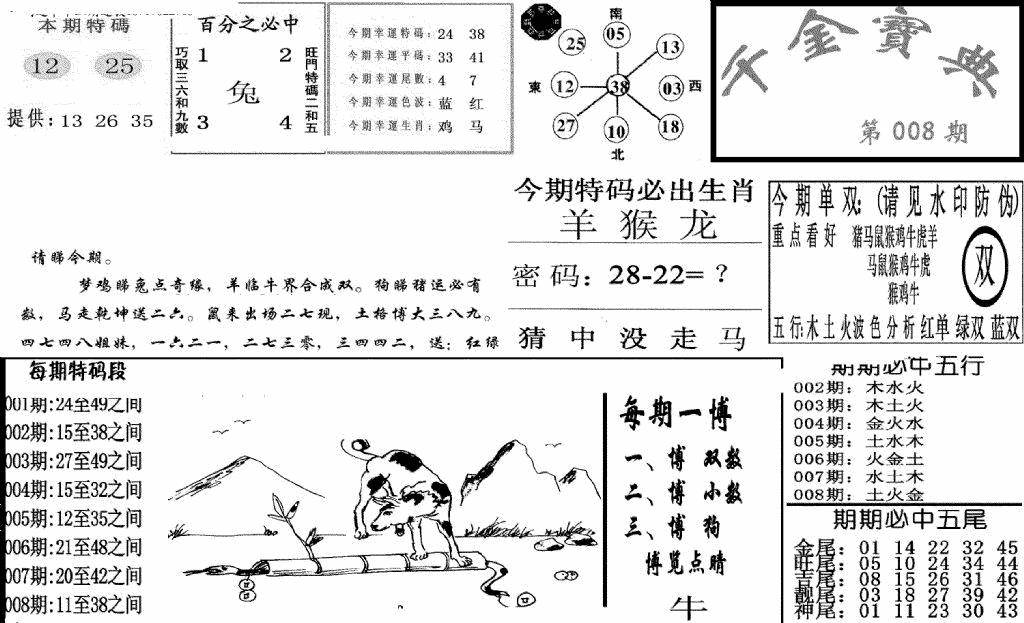 本期特碼
12 25
提供:13 26 35
百分之必中
巧取三六和九數
1 2
兔
3 4
旺門特碼二和五
今期幸運特碼: 24 38
今期幸運平碼: 33 41
今期幸運尾數: 4 7
今期幸運色波: 蓝 红
今期幸運生肖: 鸡 马
南
05
25
13
東
12
38
03
西
27
10
18
北
千金寶典
第008期
请睇今期。
梦鸡睇兔点奇缘,羊临牛界合成双。狗睇猪运必有
数,马走乾坤送二六。鼠来出场二七现,土格博大三八九。
四七四八姐妹,一六二一,二七三零,三四四二,送:红绿
今期特码必出生肖
羊 猴 龙
密码:28-22=?
猜中没走马
今期单双:(请见水印防伪)
重点看好
猪马鼠猴鸡牛虎羊
马鼠猴鸡牛虎
猴鸡牛
双
五行:木土火波色分析红单绿双蓝双
每期特码段
001期:24至49之间
002期:15至38之间
003期:27至49之间
004期:15至32之间
005期:12至35之间
006期:21至48之间
007期:20至42之间
008期:11至38之间
每期一博
一、博 双数
二、博 小数
三、博 狗
博览点睛
牛
期期必中五行
002期:木水火
003期:木土火
004期:金火水
005期:土水木
006期:火金土
007期:水土木
008期:土火金
期期必中五尾
金尾:01 14 22 32 45
旺尾:05 10 24 34 44
吉尾:08 15 26 31 46
靓尾:03 18 27 39 42
神尾:01 11 23 30 43